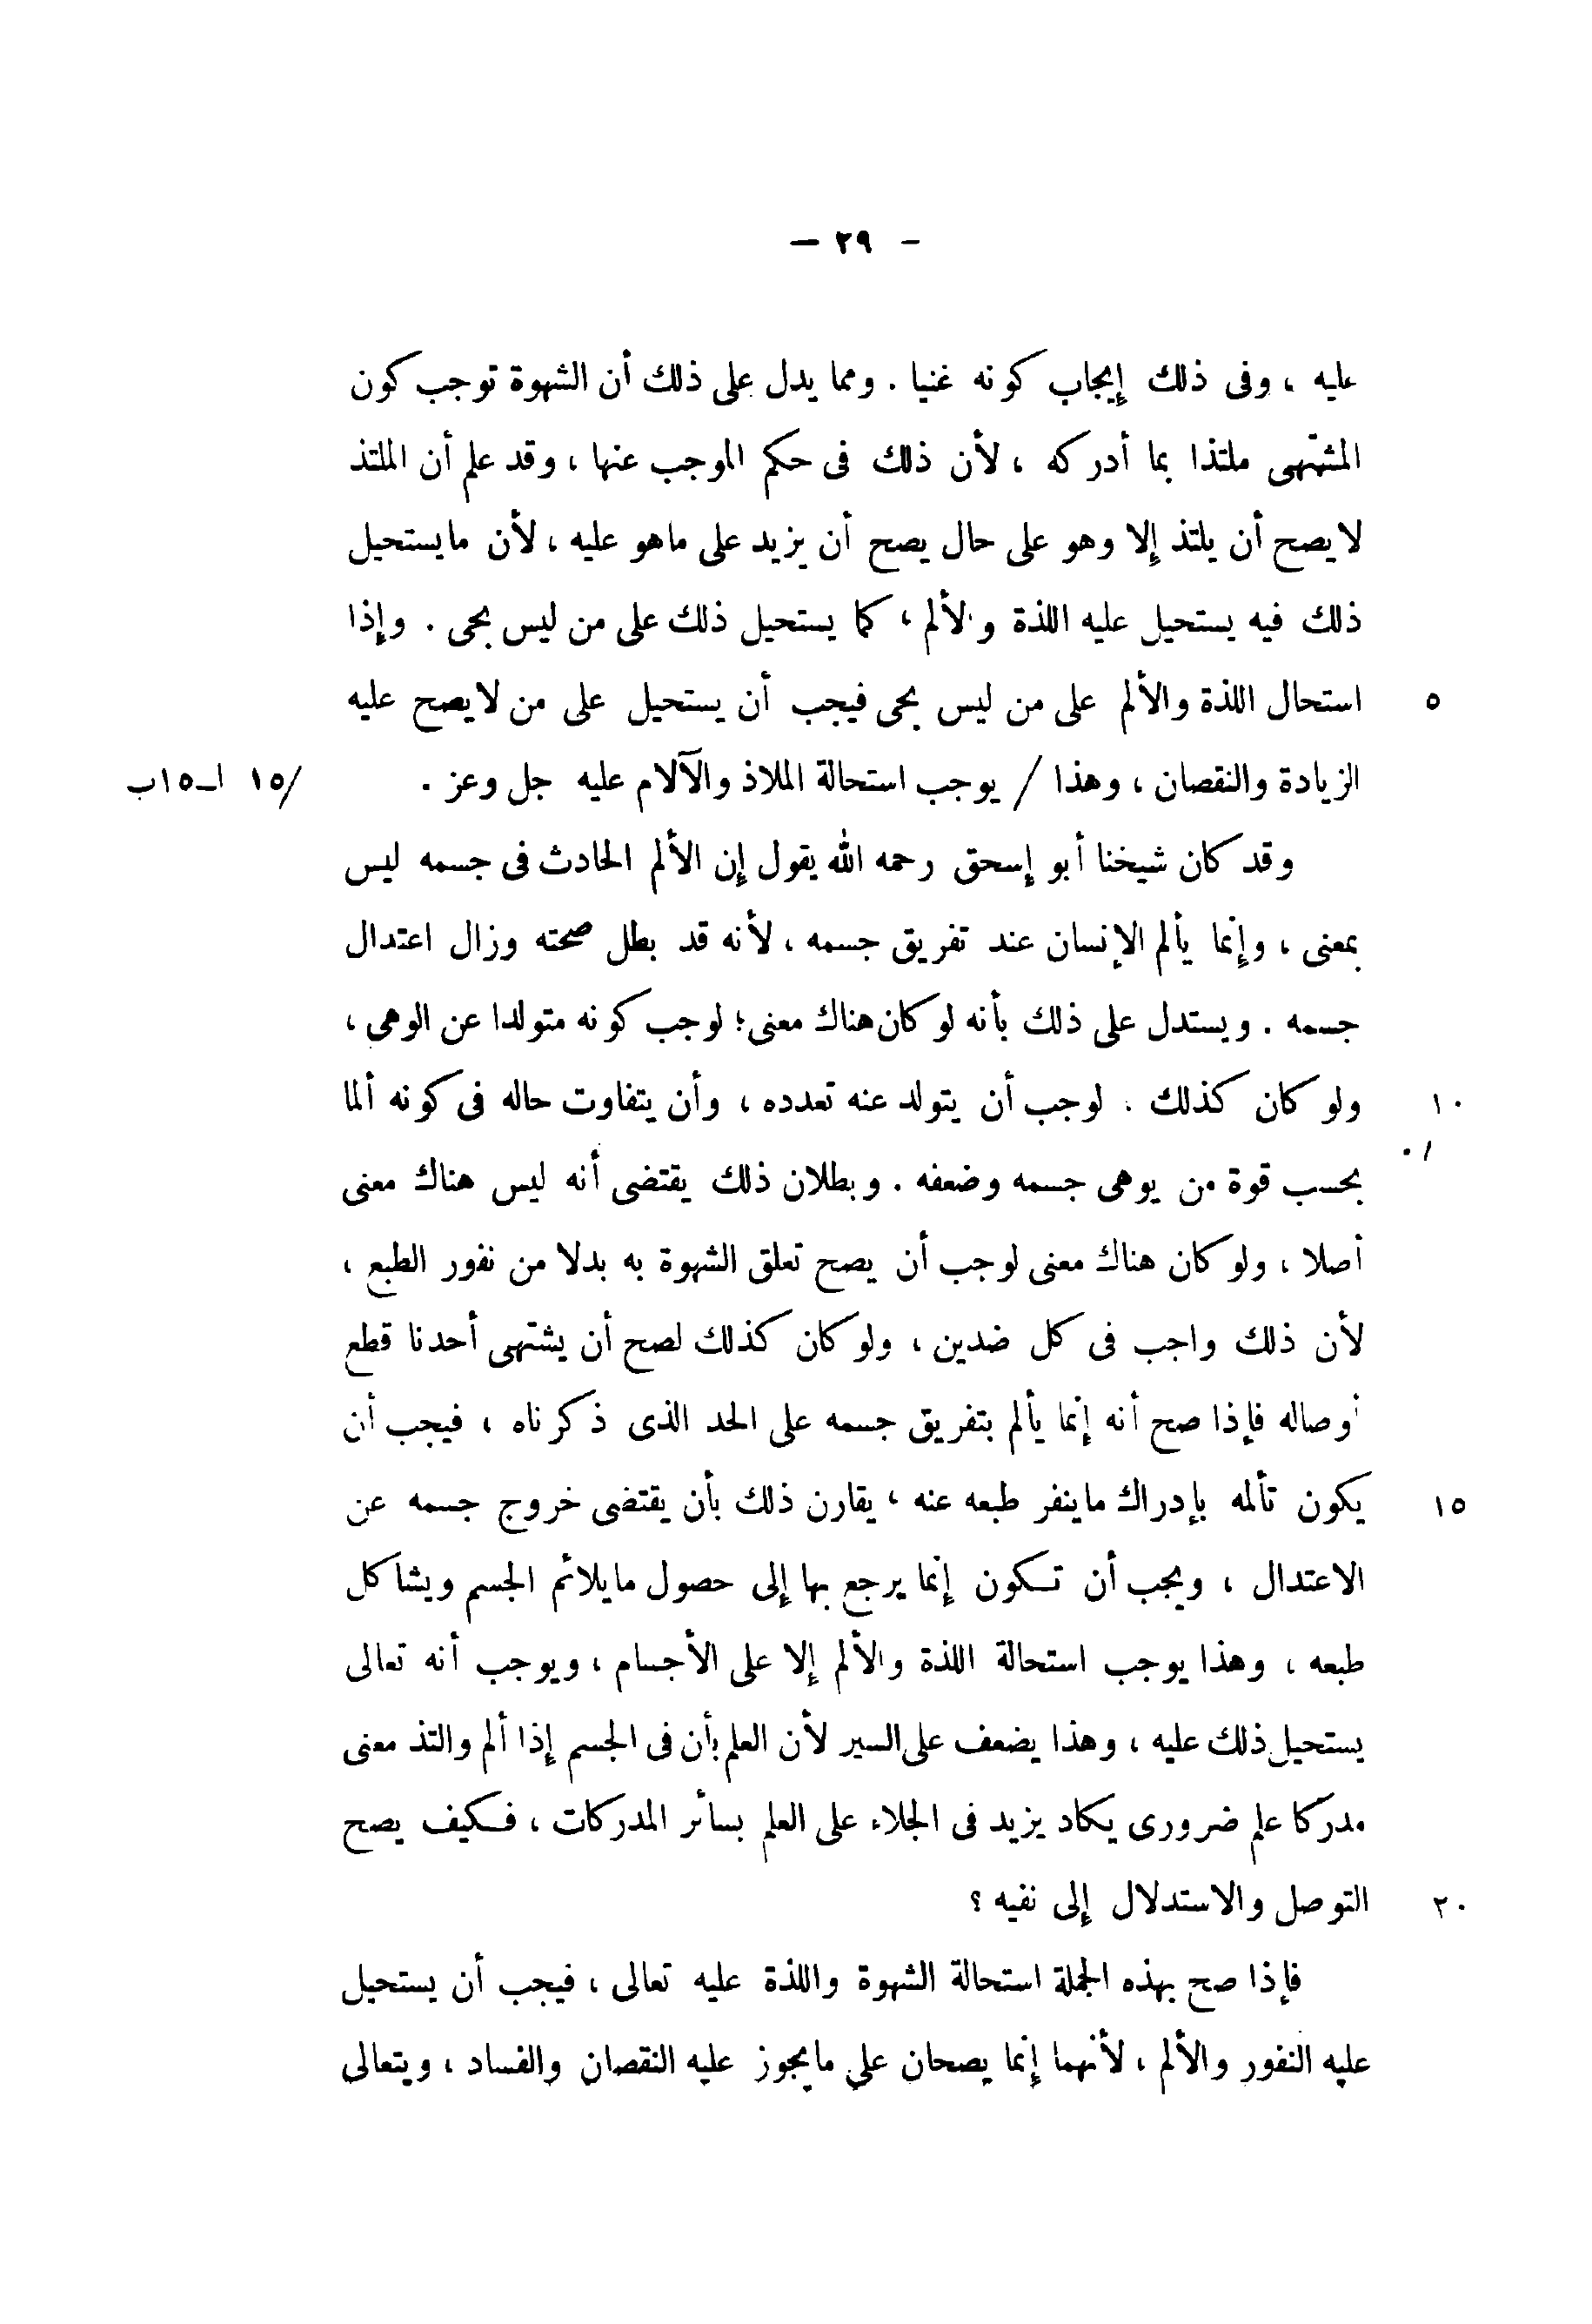 — ٢٩ —
عليه ، وفى ذلك إيجاب كونه غنيا . ومما يدل على ذلك أن الشهوة توجب كون
المشتهى ملتذا بما أدركه ، لأن ذلك فى حكم الموجب عنها ، وقد علم أن الملتذ
لا يصح أن يلتذ إلا وهو على حال يصح أن يزيد على ماهو عليه ، لأن مايستحيل
ذلك فيه يستحيل عليه اللذة والألم ، كما يستحيل ذلك على من ليس بحى . وإذا
٥ استحال اللذة والألم على من ليس بحى فيجب أن يستحيل على من لايصح عليه
الزيادة والنقصان ، وهذا / يوجب استحالة الملاذ والآلام عليه جل وعز . /١٥ ا ــ ١٥ب
وقد كان شيخنا أبو إسحق رحمه الله يقول إن الألم الحادث فى جسمه ليس
بمعنى ، وإنما يألم الإنسان عند تفريق جسمه ، لأنه قد بطل صحته وزال اعتدال
جسمه . ويستدل على ذلك بأنه لو كان هناك معنى؛ لوجب كونه متولدا عن الوهى ،
١٠ ولو كان كذلك . لوجب أن يتولد عنه تعدده ، وأن يتفاوت حاله فى كونه ألما
١٠
بحسب قوة من يوهى جسمه وضعفه . وبطلان ذلك يقتضى أنه ليس هناك معنى
أصلا ، ولو كان هناك معنى لوجب أن يصح تعلق الشهوة به بدلا من نفور الطبع ،
لأن ذلك واجب فى كل ضدين ، ولو كان كذلك لصح أن يشتهى أحدنا قطع
أوصاله فإذا صح أنه إنما يألم بتفريق جسمه على الحد الذى ذكرناه ، فيجب أن
١٥ يكون تألمه بإدراك ماينفر طبعه عنه ، يقارن ذلك بأن يقتضى خروج جسمه عن
الاعتدال ، ويجب أن تكون إنما يرجع بها إلى حصول مايلائم الجسم ويشاكل
طبعه ، وهذا يوجب استحالة اللذة والألم إلا على الأجسام ، ويوجب أنه تعالى
يستحيل ذلك عليه ، وهذا يضعف على السير لأن العلم بأن فى الجسم إذا ألم والتذ معنى
مدركا علم ضرورى يكاد يزيد فى الجلاء على العلم بسائر المدركات ، فكيف يصح
٢٠ التوصل والاستدلال إلى نفيه ؟
فإذا صح بهذه الجملة استحالة الشهوة واللذة عليه تعالى ، فيجب أن يستحيل
عليه النفور والألم ، لأنهما إنما يصحان على مايجوز عليه النقصان والفساد ، ويتعالى